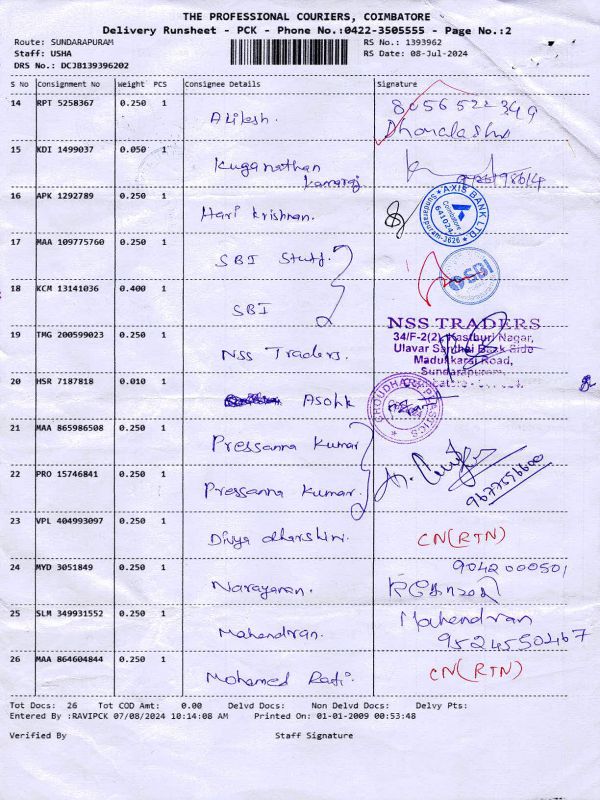 THE PROFESSIONAL COURIERS, COIMBATORE
Delivery Runsheet - PCK - Phone No.:0422-3505555 - Page No.:2
Route: SUNDARAPURAM RS No.: 1393962
Staff: USHA RS Date: 08-Jul-2024
DRS No.: DCJB139396202
S No Consignment No Weight PCS Consignee Details Signature
14 RPT 5258367 0.250 1 8056522349
Akilesh.
15 KDI 1499037 0.050 1 Kuganathan
Kamaraj
16 APK 1292789 0.250 1 Hari Krishnan. AXIS BANK LTD
Coimbatore
641024
17 MAA 109775760 0.250 1 SBI
SBI
18 KCM 13141036 0.400 1
SBI
NSS TRADERS
19 TMG 200599023 0.250 1 34/F-2(2), Kasthuri Nagar,
NSS Traders. Ulavar Santhai Back Side
Madukkarai Road,
Sundarapuram,
20 HSR 7187818 0.010 1
Asohk
21 MAA 865986508 0.250 1
Pressanna Kumar
22 PRO 15746841 0.250 1
Pressanna Kumar. 9677556600
23 VPL 404993097 0.250 1
Divya dharshini. CN(RTN)
24 MYD 3051849 0.250 1 9042000501
Narayanan.
25 SLM 349931552 0.250 1 Mahendran
Mahendran. 9524550267
26 MAA 864604844 0.250 1 CN(RTN)
Mohamed Rafi.
Tot Docs: 26 Tot COD Amt: 0.00 Delvd Docs: Non Delvd Docs: Delvy Pts:
Entered By :RAVIPCK 07/08/2024 10:14:08 AM Printed On: 01-01-2009 00:53:48
Verified By Staff Signature